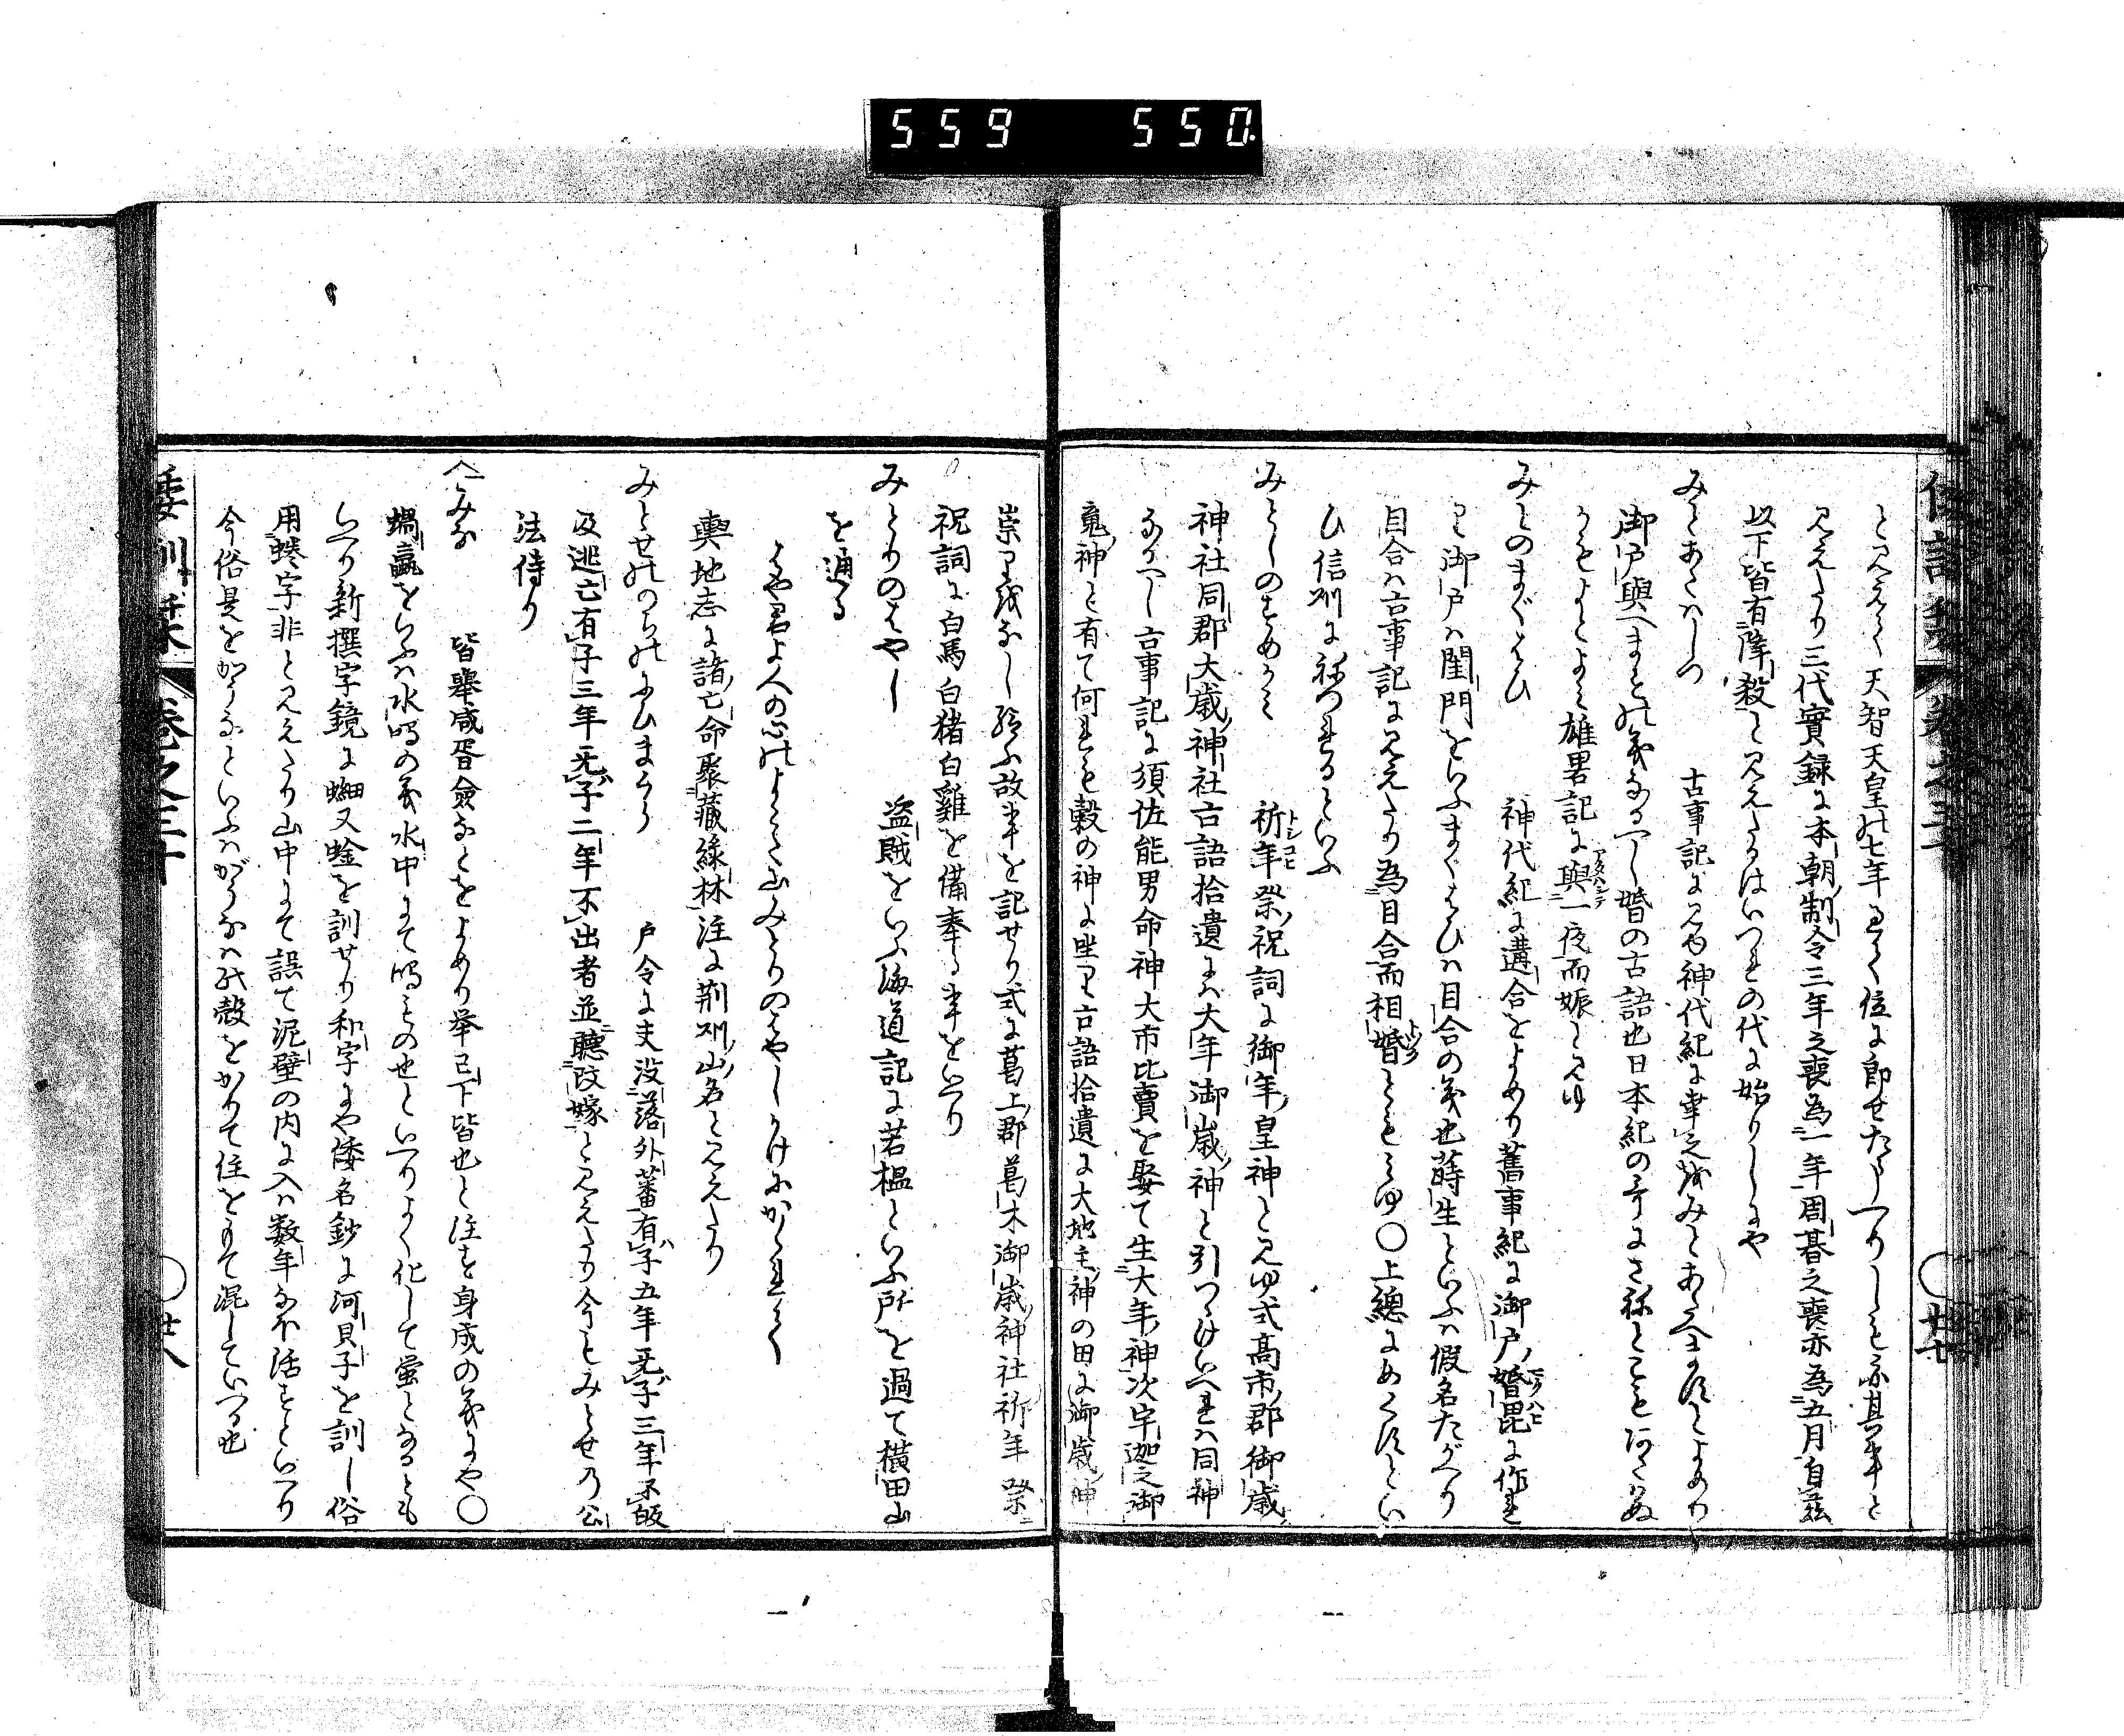 559 550.
と見えて天智天皇の七年まて位に即せたまへりしも亦其事と
見えたり三代實録に本朝制令三年之喪為一年周碁之喪亦為五月自茲
以下皆有降殺と見えたるはいつれの代に始りしにや
みとあたはしつ 古事記に見ゆ神代紀に幸之をみとあたはすとよめり
御戸與へまとの義なるへし婚の古語也日本紀の哥にさねとこも
かもよとよみ雄畧記に與一夜而娠と見ゆ
みとのまぐはひ 神代紀に遘合をよめり舊事紀に御戸婚毘に作れ
り御戸は閨門をいふまぐはひは目合の義也蒔生といふは假名たがへり
目合は古事記に見えたり為目合而相婚ともみゆ〇上總にめくはすとい
ひ信州にねつれるといふ
みとしのすめかみ 祈年祭祝詞に御年皇神と見ゆ式高市郡御歳
神社同郡大歳神社古語拾遺には大年御歳神と引つゝけいへれは同神
なるへし古事記に須佐能男命神大市比賣を娶て生大年神次宇迦之御
䰠神と有て何れも穀の神に坐り古語拾遺に大地主神の田に御歳神
崇りをなし給ふ故事を記せり式に葛上郡葛木御歳神社祈年祭
祝詞に白馬白猪白雞を備奉る事をいへり
みとりのはやし 盗賊をいふ海道記に若榲といふ所を過て横田山
を通る
はや君よ人の心のよこた山みとりのはやしかけにかくれて
輿地志に諸亡命聚藏緑林注に荆州山名と見えたり
みとせののちのにひまくら 戸令に夫没落外蕃有子五年无子三年不皈
及逃亡有子三年无子二年不出者並聽改嫁と見えたり今もみとせの公
法侍り
みな 皆舉咸胥僉などをよめり举已下皆也と注す身成の義にや〇
蝸蠃をいふは水鳴の義水中にて鳴もの也といへりよく化して螢となるとも
いへり新撰字鏡に蜠又蛿を訓せり和字にや倭名鈔に河貝子を訓し俗
用蜷字非と見えたり山中にて誤て泥壁の内に入は数年なほ活すといへり
今俗是をがうなといふはがうなは殻をかりて住をもて混していへる也
倭訓栞 巻之三十 〇廿七
倭訓栞 巻之三十 〇廿八